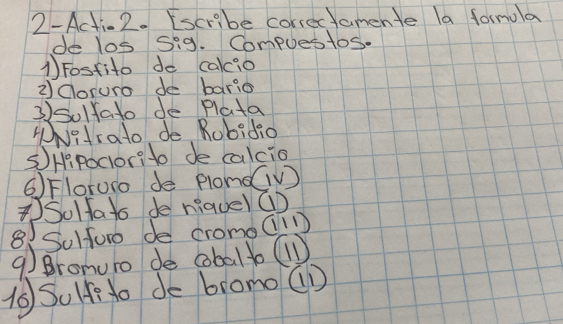 2-Acti.2. Escribe correctamente la formula
de los sig. Compuestos.
1) Fosfito de calcio
2) Cloruro de bario
3) Sulfato de Plata
4) Nitrato de Rubidio
5) Hipoclorito de calcio
6) Floruro de Plomo (IV)
7) Sulfato de niquel (I)
8) Sulfuro de cromo (III)
9) Bromuro de cobalto (II)
10) Sulfito de bromo (II)